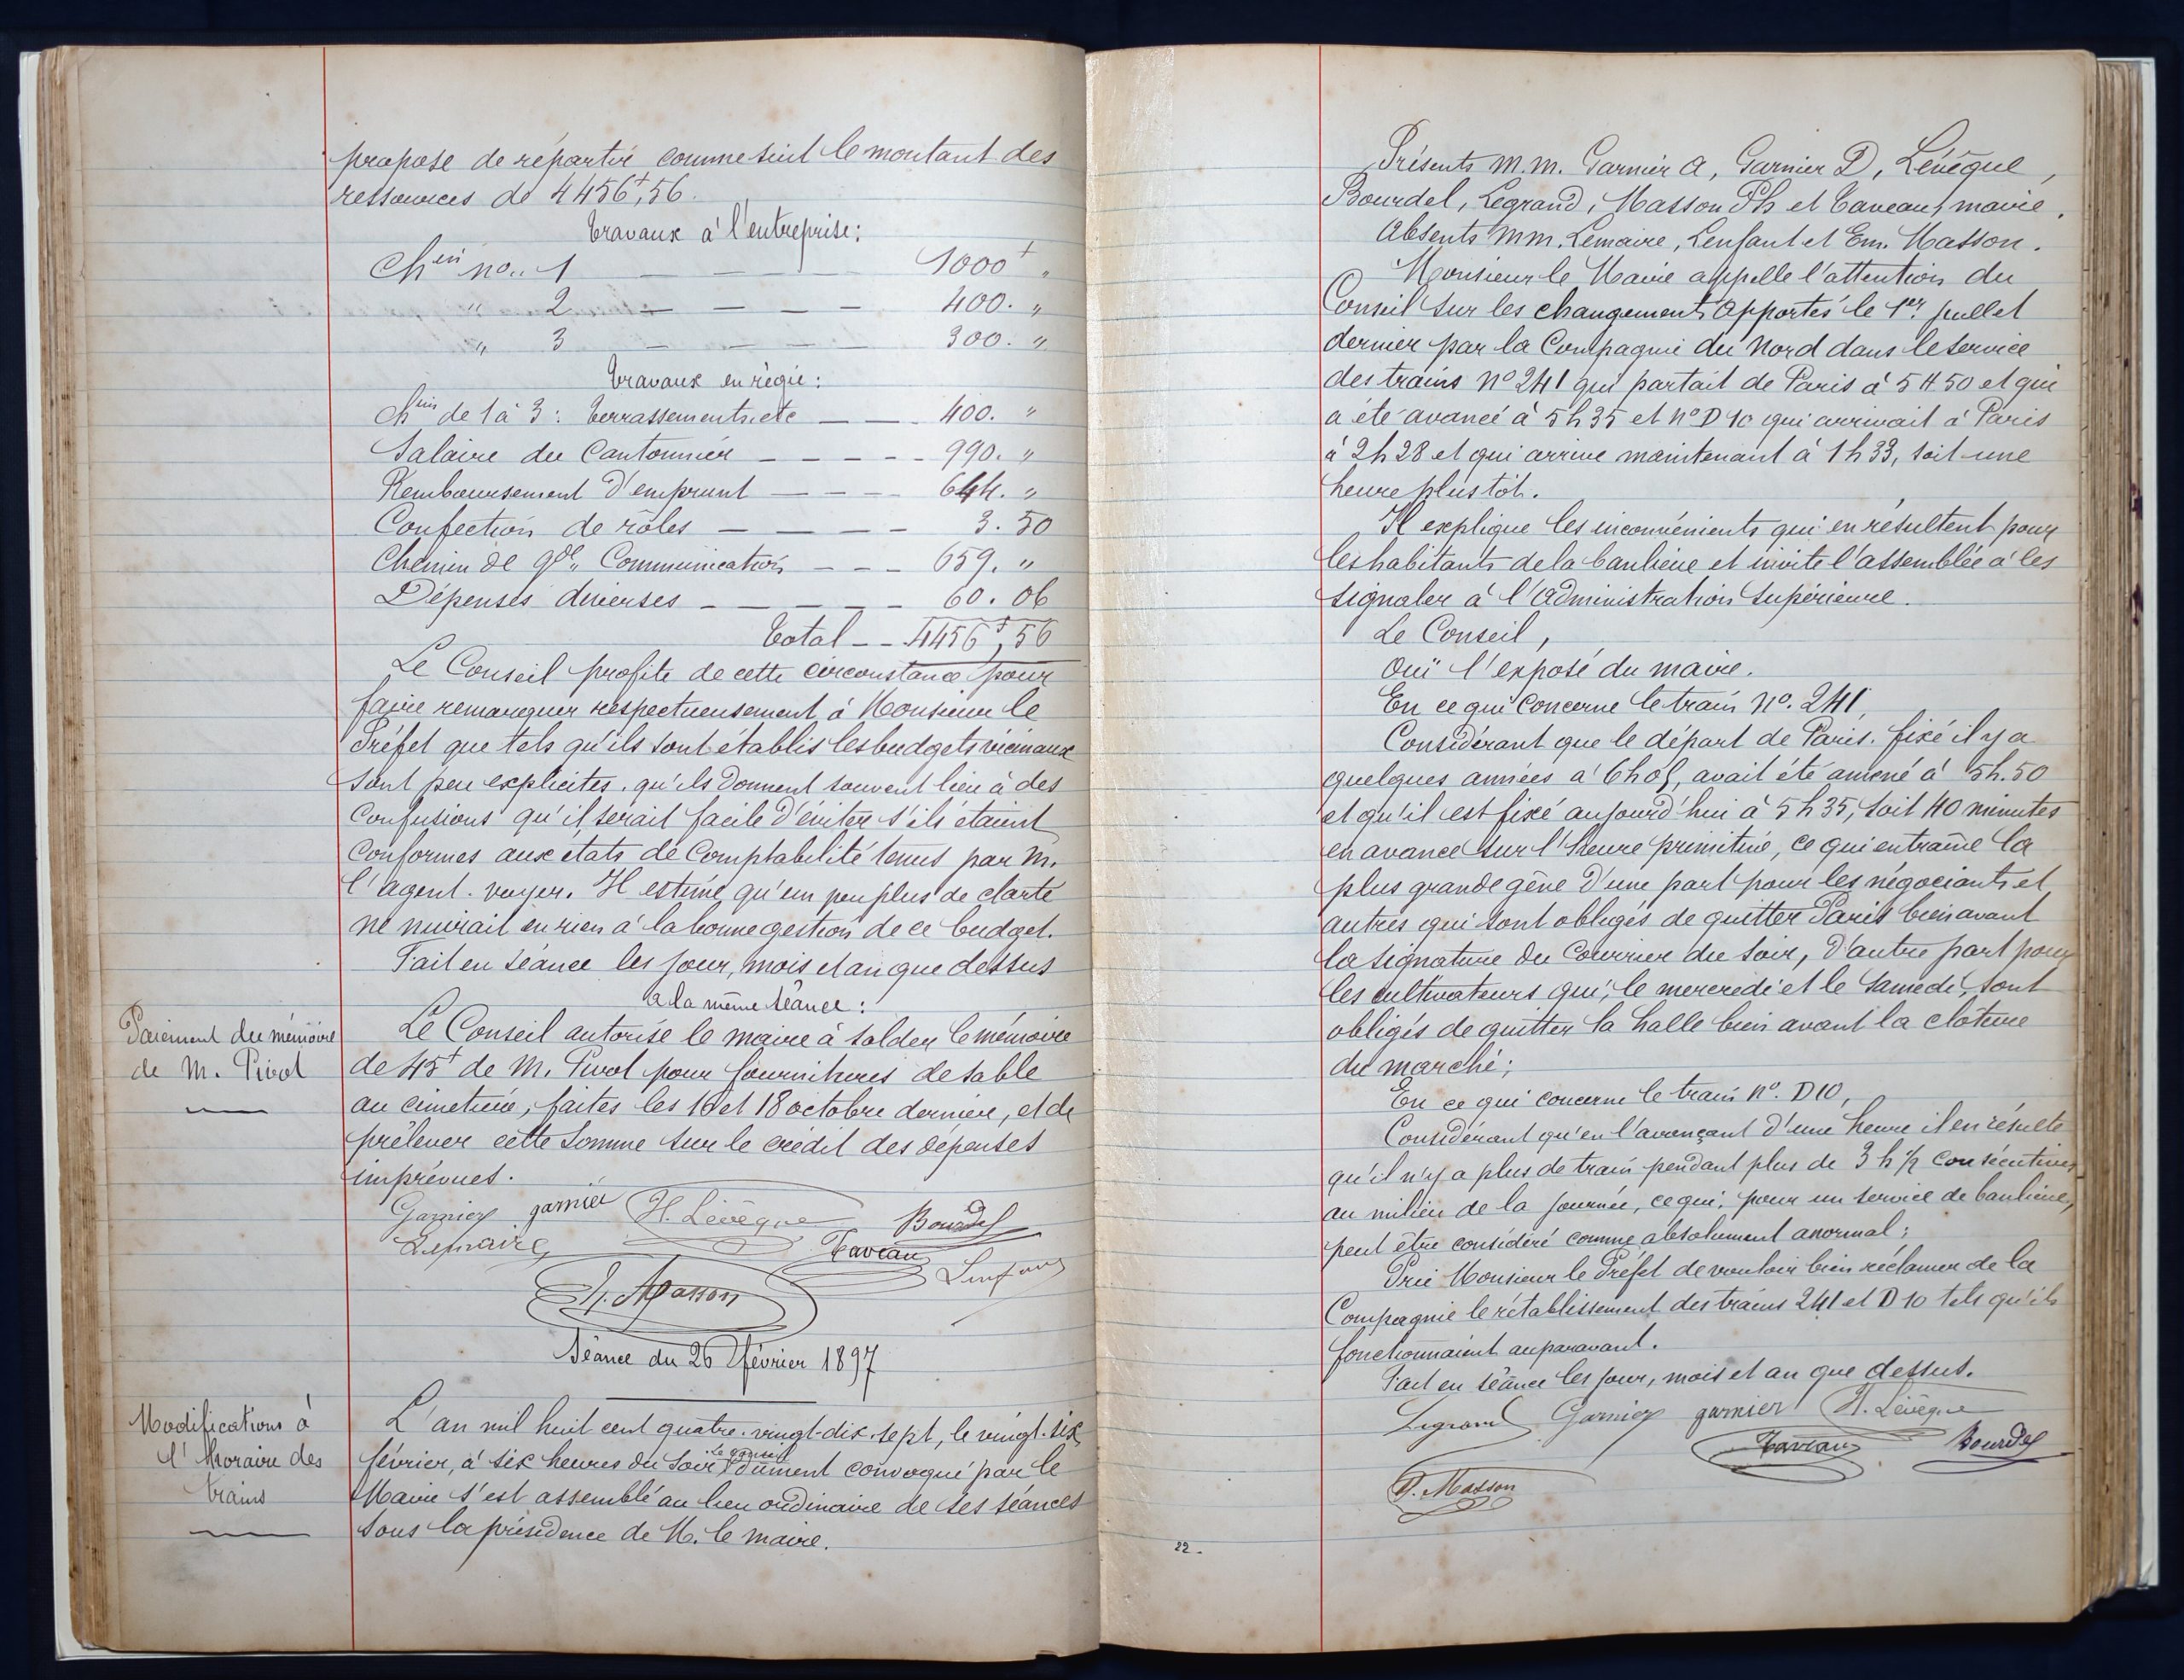 propose de répartir comme suit le montant des
ressources de 4456f,56.
Travaux à l'entreprise:
Chein no.. 1 — — — 1000f "
" 2 — — — — 400. "
" 3 — — — — 300. "
Travaux en régie:
Chins de 1 à 3: terrassements. etc — — 400. "
Salaire du Cantonnier — — — — — 990. "
Remboursement d'emprunt — — — — 644. "
Confection de rôles — — — — — 3. 50
Chemin de gde " Communication — — — 659. "
Dépenses diverses — — — — — 60. 06
Total — — 4456f,56
Le Conseil profite de cette circonstance pour
faire remarquer respectueusement à Monsieur le
Préfet que tels qu'ils sont établis les budgets vicinaux
sont peu explicites. qu'ils donnent souvent lieu à des
confusions qu'il serait facile d'éviter s'ils étaient
conformes aux états de comptabilité tenus par M.
l'agent-voyer. Il estime qu'un peu plus de clarté
ne nuirait en rien à la bonne gestion de ce budget.
Fait en séance les jour, mois et an que dessus
a la même séance:
Paiement du mémoire
de M. Pivot
Le Conseil autorise le maire à solder le mémoire
de 45f de M. Pivot pour fournitures de sable
au cimetière, faites les 16 et 18 octobre dernier, et de
prélever cette somme sur le crédit des dépenses
imprévues.
Garnier garnier H. Lévêque Bourdel
Lemaire Taveau Lenfant
Ph. Masson
Séance du 26 février 1897
Modifications à
l'horaire des
trains
L'an mil huit cent quatre-vingt-dix-sept, le vingt-six
février, à six heures du soir, le conseil dûment convoqué par le
Maire s'est assemblé au lieu ordinaire de ses séances
sous la présidence de M. le maire.
Présents M.M. Garnier A, Garnier D, Lévêque,
Bourdel, Legrand, Masson Ph et Taveau, maire.
Absents MM. Lemaire, Lenfant et Em. Masson.
Monsieur le Maire appelle l'attention du
Conseil sur les changements apportés le 1er juillet
dernier par la Compagnie du Nord dans le service
des trains no 241 qui partait de Paris à 5 H 50 et qui
a été avancé à 5 h 35 et no D 10 qui arrivait à Paris
à 2 h 28 et qui arrive maintenant à 1 h 33, soit une
heure plus tôt.
Il explique les inconvénients qui en résultent pour
les habitants de la banlieue et invite l'assemblée à les
signaler à l'administration supérieure.
Le Conseil,
Ouï l'exposé du maire.
En ce qui concerne le train no. 241,
Considérant que le départ de Paris. fixé il y a
quelques années à 6 h 05, avait été amené à 5h. 50
et qu'il est fixé aujourd'hui à 5 h 35, soit 40 minutes
en avance sur l'heure primitive, ce qui entraîne la
plus grande gêne d'une part pour les négociants et
autres qui sont obligés de quitter Paris bien avant
la signature du courrier du soir, d'autre part pour
les cultivateurs qui, le mercredi et le samedi, sont
obligés de quitter la halle bien avant la clôture
du marché;
En ce qui concerne le train no. D10,
Considérant qu'en l'avançant d'une heure il en résulte
qu'il n'y a plus de train pendant plus de 3 h ½ consécutives
au milieu de la journée, ce qui, pour un service de banlieue,
peut être considéré comme absolument anormal;
Prie Monsieur le Préfet de vouloir bien réclamer de la
Compagnie le rétablissement des trains 241 et D 10 tels qu'ils
fonctionnaient auparavant.
Fait en séance les jour, mois et an que dessus.
Legrand Garnier garnier H. Lévêque
Taveau Bourdel
P. Masson
22.